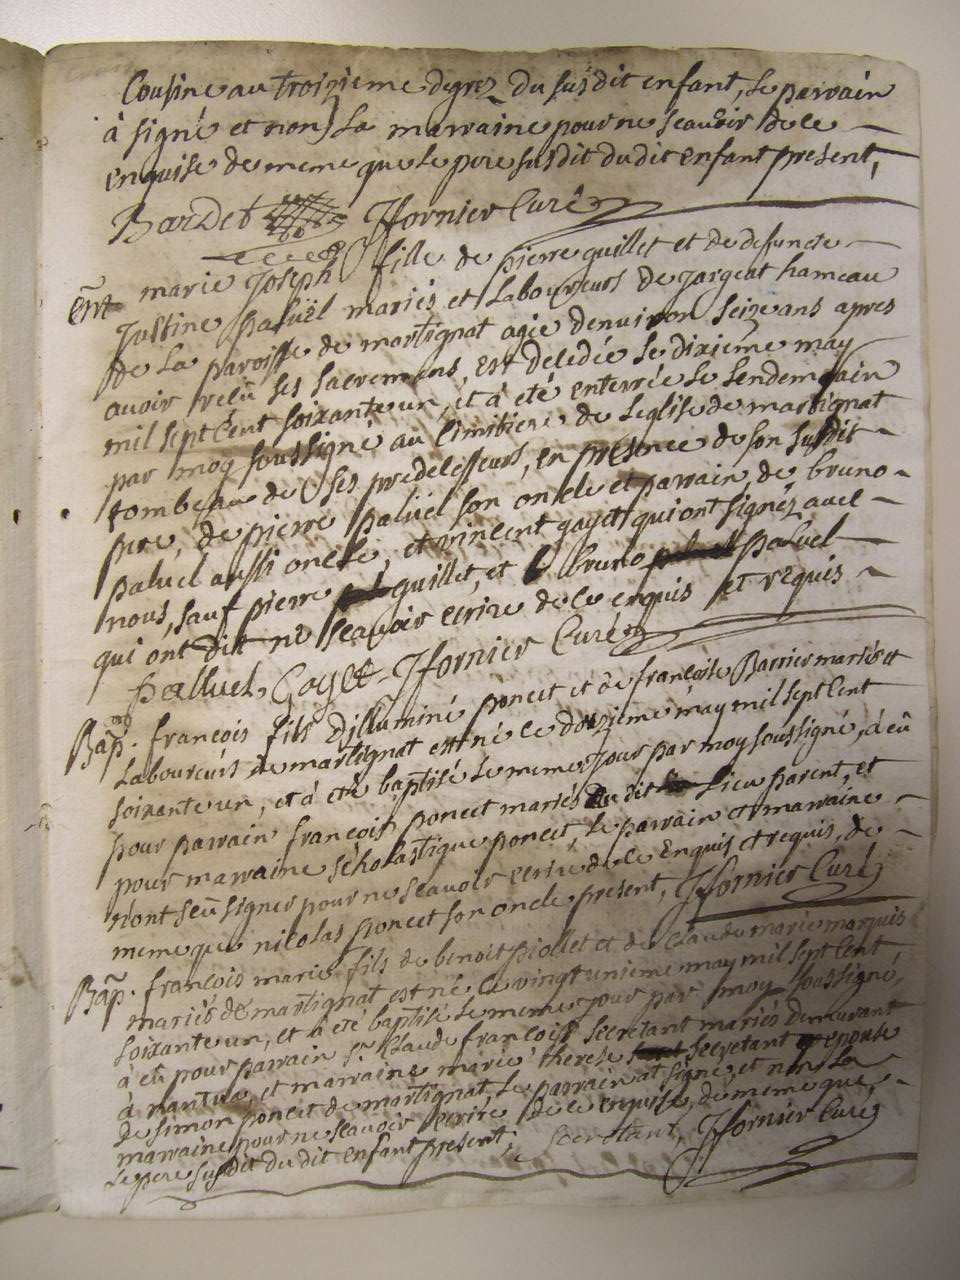 Cousine au troizieme degrez du susdit enfant, le parrain
à signé et non la marraine pour ne sçauoir de ce
enquise de meme que le pere susdit dudit enfant present,
Bardet JFornier Curé
Ent marie Joseph fille de pierre guillet et de defuncte
Justine paluël mariés et Laboureurs de Jargeat hameau
de La paroisse de martignat agée denuiron seize ans apres
auoir reçû ses sacremens, est decedée le dixieme may
mil sept Cent soixante un, et à été enterrée le Lendemain
par moy soussigné au Cimitiere de Leglise de martignat
tombeau de ses predecesseurs, en presence de son susdit
pere, de pierre paluël son oncle et parrain, de bruno
paluel aussi oncle, et vincent gayet qui ont signéz auec
nous, sauf pierre guillet, et bruno paluel
qui ont dit ne sçauoir ecrire de ce enquis et requis
palluel, Gayet JFornier Curé
Bap. francois fils dilluminé poncet et de françoise Barrier mariés et
Laboureurs de martignat est né le douzieme may mil sept Cent
soixante un, et à été baptisé le meme Jour par moy soussigné, à eû
pour parrain françois poncet mariés du dit Lieu parent, et
pour marraine scholastique poncet, le parrain et marraine
n'ont sçû signer pour ne sçauoir ecrire de ce Enquis et requis, de
meme que nicolas poncet son oncle present, JFornier Curé
Bap. françois marie fils de benoit piollet et de Claude marie marquis
mariés de martignat est né le vingt unieme may mil sept Cent
soixante un, et à été baptisé le meme Jour par moy soussigné,
à eû pour parrain sr. Claude françois secretant mariés demeurant
à nantua, et marraine marie therese secretant epouse
de simon poncet de martignat, Le parrain at signé, et non La
marraine pour ne sçauoir ecrire de ce enquise, de meme que
Le pere susdit du dit enfant present, secretant, JFornier Curé